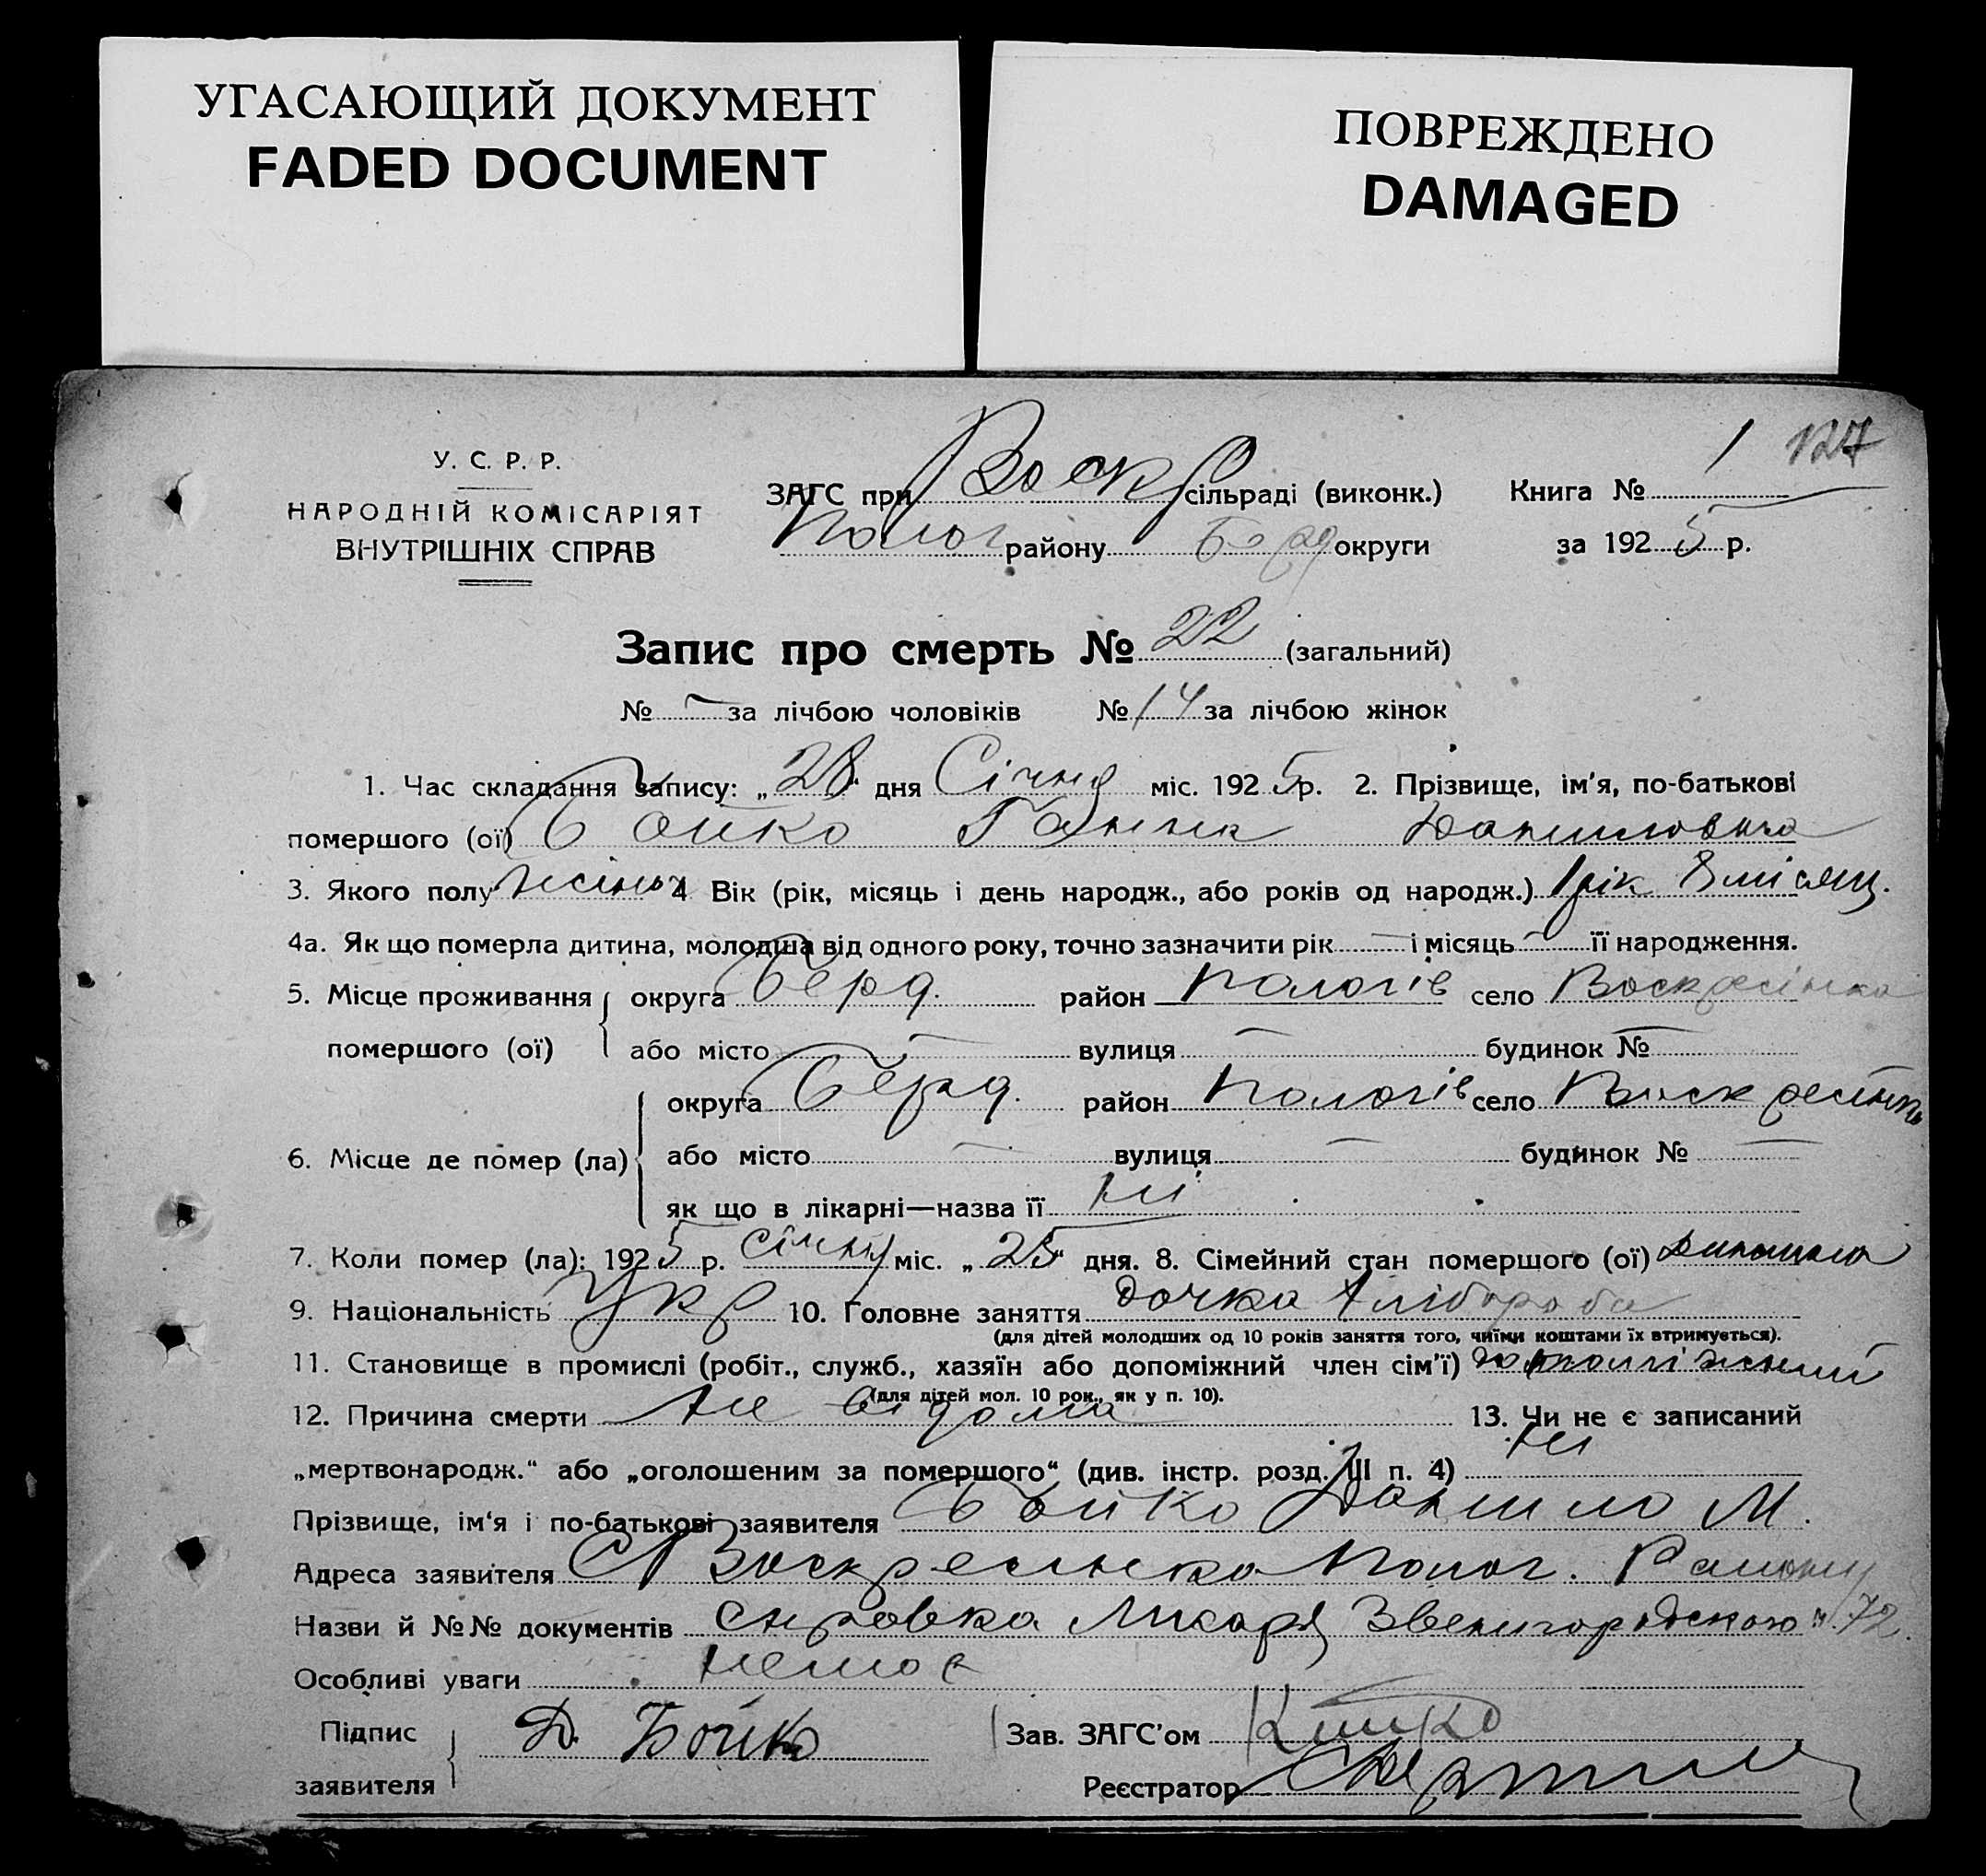 УГАСАЮЩИЙ ДОКУМЕНТ
FADED DOCUMENT
ПОВРЕЖДЕНО
DAMAGED
1 127
У. С. Р. Р.
НАРОДНІЙ КОМІСАРІЯТ
ВНУТРІШНІХ СПРАВ
ЗАГС при Воскр сільраді (виконк.) Книга №
Полог району Берд округи за 1925 р.
Запис про смерть № 22 (загальний)
№ - за лічбою чоловіків № 14 за лічбою жінок
1. Час складання запису: „28“ дня Січня міс. 1925 р. 2. Прізвище, ім'я, по-батькові
помершого (ої) Бойко Ганна Даниловна
3. Якого полу жіноч 4 Вік (рік, місяць і день народж., або років од народж.) 1 рік 8 місяц.
4а. Як що померла дитина, молодша від одного року, точно зазначити рік — і місяць — її народження.
5. Місце проживання округа Берд. район Пологів село Воскресінка
помершого (ої) або місто — вулиця — будинок № —
округа Берд. район Пологів село Воскресінка
6. Місце де помер (ла) або місто — вулиця — будинок № —
як що в лікарні—назва її Ні
7. Коли помер (ла): 1925 р. січня міс. „25“ дня. 8. Сімейний стан помершого (ої)
9. Національність Укр 10. Головне заняття дочка хлібороба
(для дітей молодших од 10 років заняття того, чиїми коштами їх втримується).
11. Становище в промислі (робіт., служб., хазяїн або допоміжний член сім'ї) допоміжний
(для дітей мол. 10 рок., як у п. 10).
12. Причина смерти не відома 13. Чи не є записаний
„мертвонародж.“ або „оголошеним за помершого“ (див. інстр. розд. III п. 4) Ні
Прізвище, ім'я і по-батькові заявителя Бойко Данило М.
Адреса заявителя С Воскресінка Полог. Району
Назви й №№ документів справка Лікаря Звенигородского № 72
Особливі уваги немає
Підпис Д. Бойко Зав. ЗАГС'ом
заявителя Реєстратор